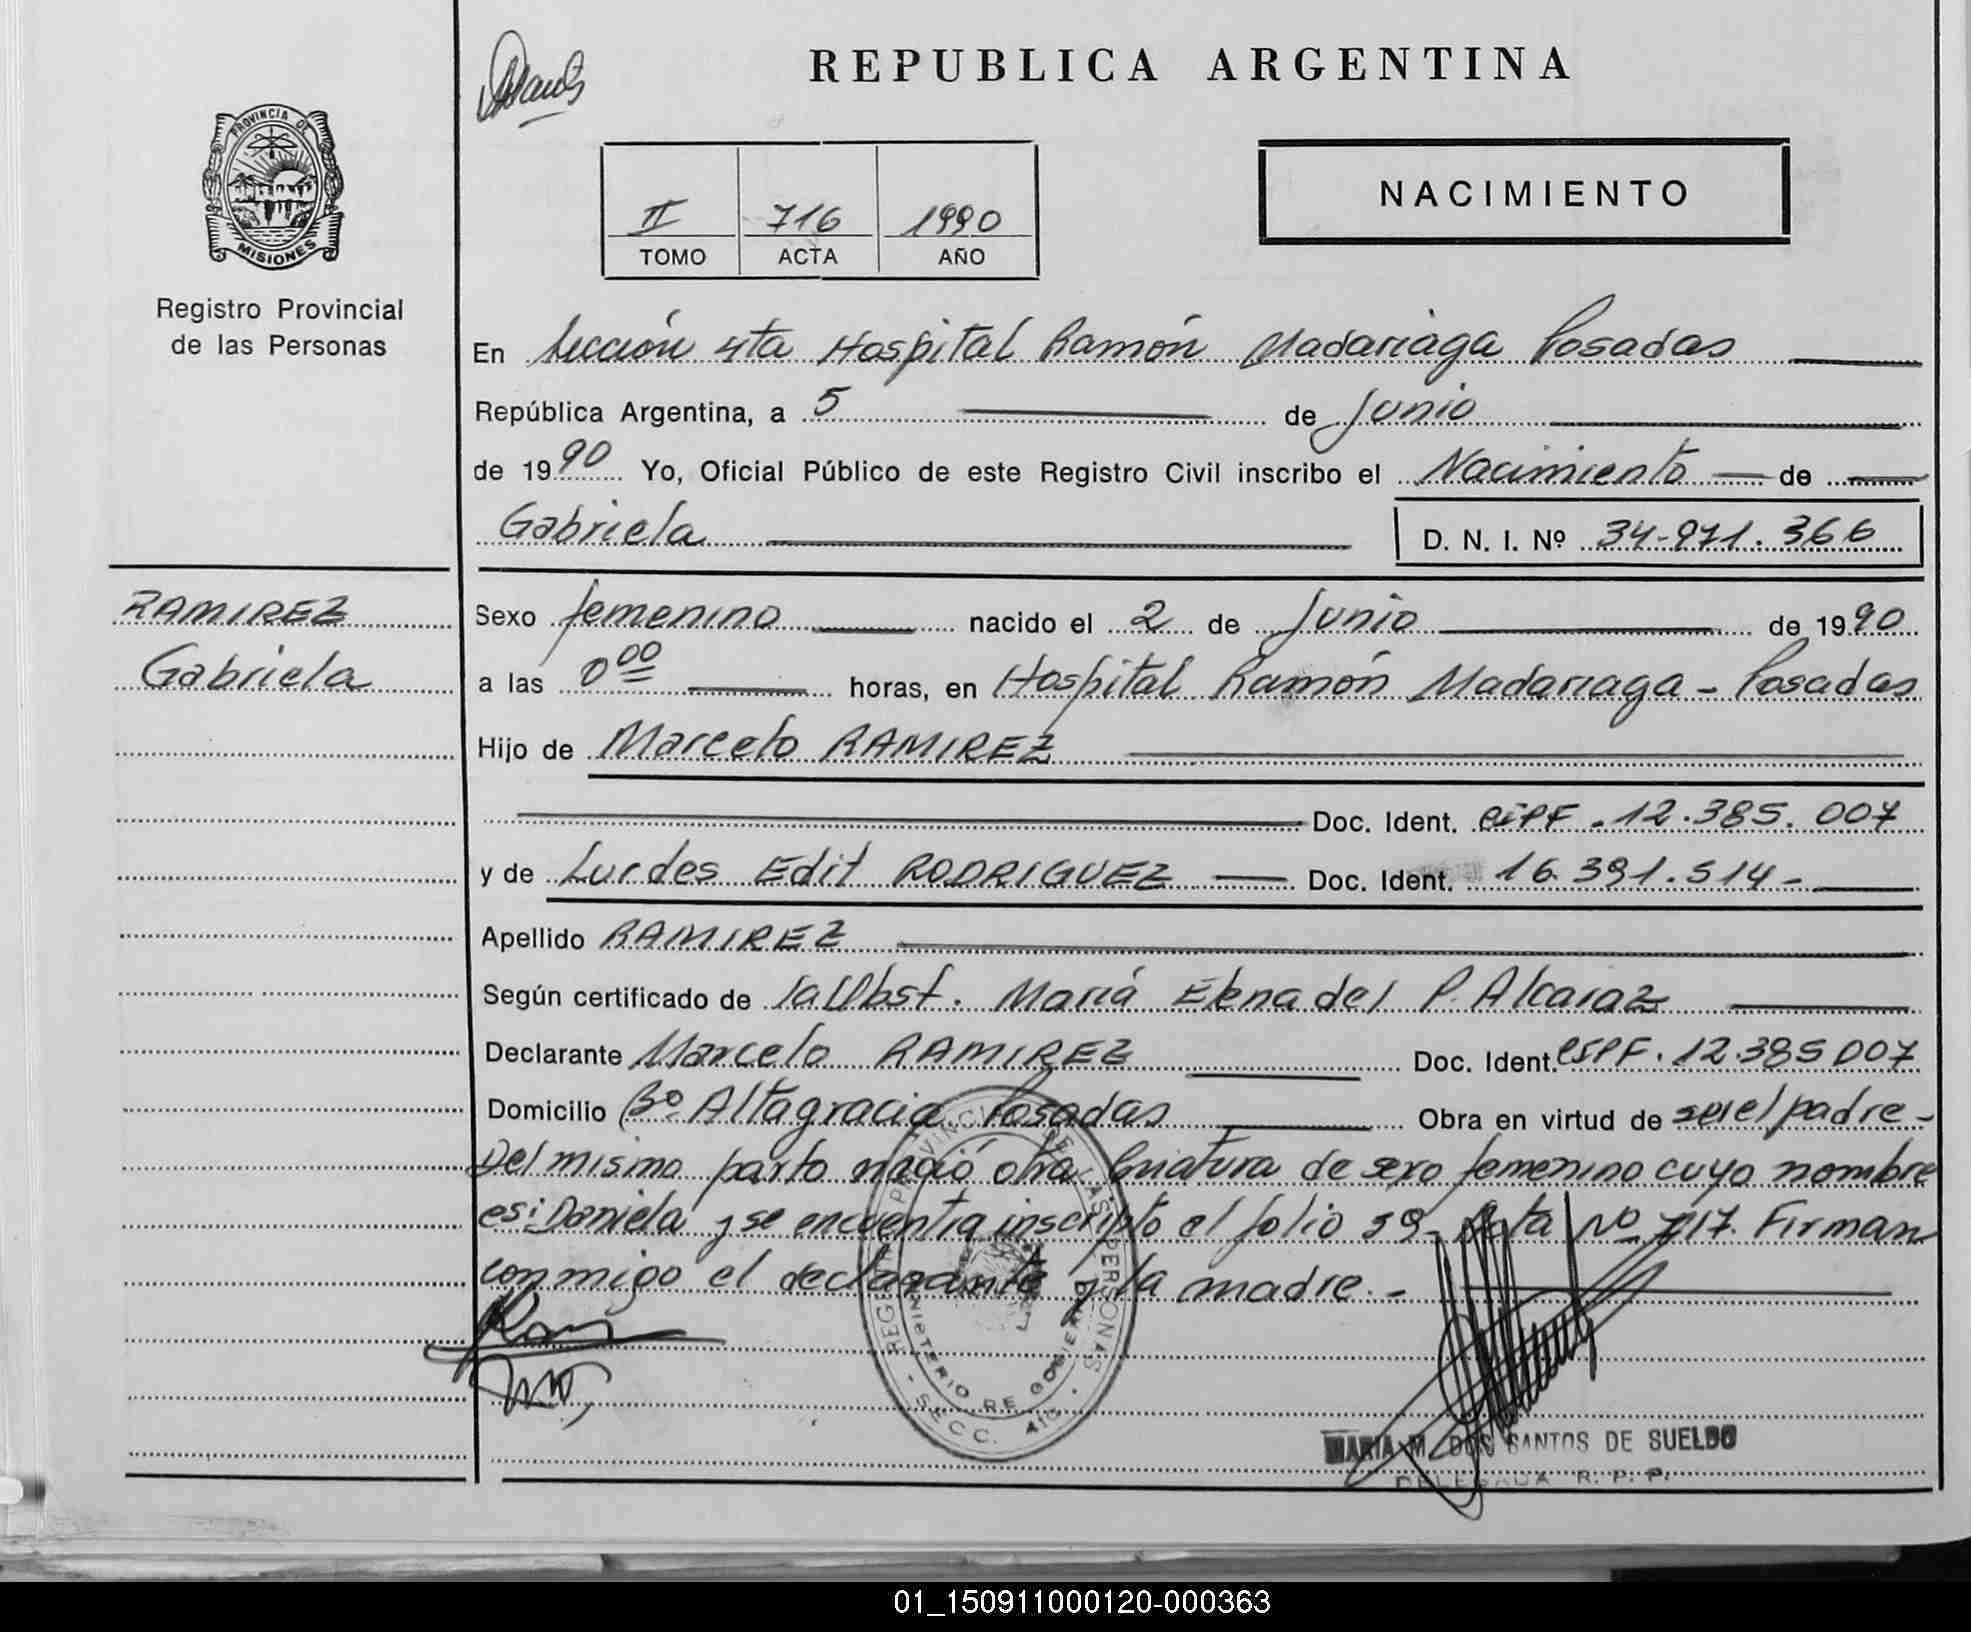 REPUBLICA ARGENTINA
PROVINCIA DE
MISIONES
Registro Provincial
de las Personas
II 716 1990
TOMO ACTA AÑO
NACIMIENTO
En Sección 4ta Hospital Ramón Madariaga Posadas
República Argentina, a 5 de Junio
de 1990 Yo, Oficial Público de este Registro Civil inscribo el Nacimiento de
Gabriela
D. N. I. Nº 34-971.366
RAMIREZ
Gabriela
Sexo femenino nacido el 2 de Junio de 1990
a las 0 00 horas, en Hospital Ramón Madariaga - Posadas
Hijo de Marcelo RAMIREZ
Doc. Ident. CIPF. 12.385.007
y de Lurdes Edit RODRIGUEZ Doc. Ident. 16.391.514-
Apellido RAMIREZ
Según certificado de la Obst. María Elena del P. Alcaraz
Declarante Marcelo RAMIREZ Doc. Ident. CIPF. 12.385007
Domicilio Bº Altagracia Posadas Obra en virtud de ser el padre-
Del mismo parto nació otra Criatura de sexo femenino cuyo nombre
es: Daniela y se encuentra inscripto al folio 39- Acta Nº 717. Firman
conmigo el declarante y la madre.-
MINISTERIO DE GOBIERNO
SECC.
MARIA M. DOS SANTOS DE SUELDO
DELEGADA R. P. P.
01_150911000120-000363